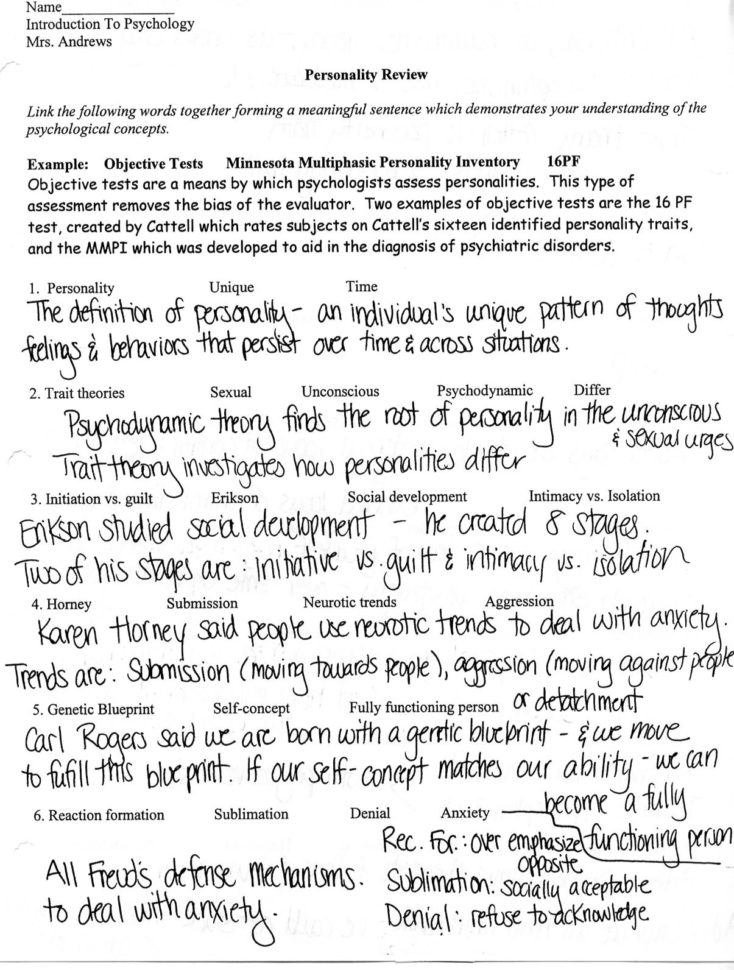 Name_______________
Introduction To Psychology
Mrs. Andrews
Personality Review
Link the following words together forming a meaningful sentence which demonstrates your understanding of the
psychological concepts.
Example: Objective Tests Minnesota Multiphasic Personality Inventory 16PF
Objective tests are a means by which psychologists assess personalities. This type of
assessment removes the bias of the evaluator. Two examples of objective tests are the 16 PF
test, created by Cattell which rates subjects on Cattell's sixteen identified personality traits,
and the MMPI which was developed to aid in the diagnosis of psychiatric disorders.
1. Personality Unique Time
The definition of personality - an individual's unique pattern of thoughts
feelings & behaviors that persist over time & across situations.
2. Trait theories Sexual Unconscious Psychodynamic Differ
Psychodynamic theory finds the root of personality in the unconscious
& sexual urges
Trait theory investigates how personalities differ
3. Initiation vs. guilt Erikson Social development Intimacy vs. Isolation
Erikson studied social development - he created 8 stages.
Two of his stages are: initiative vs. guilt & intimacy vs. isolation
4. Horney Submission Neurotic trends Aggression
Karen Horney said people use neurotic trends to deal with anxiety.
Trends are: Submission (moving towards people), aggression (moving against people
or detatchment
5. Genetic Blueprint Self-concept Fully functioning person
Carl Rogers said we are born with a genetic blueprint - & we move
to fufill this blue print. If our self-concept matches our ability - we can
become a fully
functioning person
6. Reaction formation Sublimation Denial Anxiety
All Freud's defense mechanisms.
to deal with anxiety.
Rec. For.: over emphasize
opposite
Sublimation: socially acceptable
Denial: refuse to acknowledge